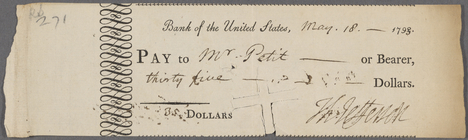 271
Bank of the United States, May. 18. — 1793.
PAY to Mr. Petit — or Bearer,
thirty five — Dollars.
35. DOLLARS
Th: Jefferson